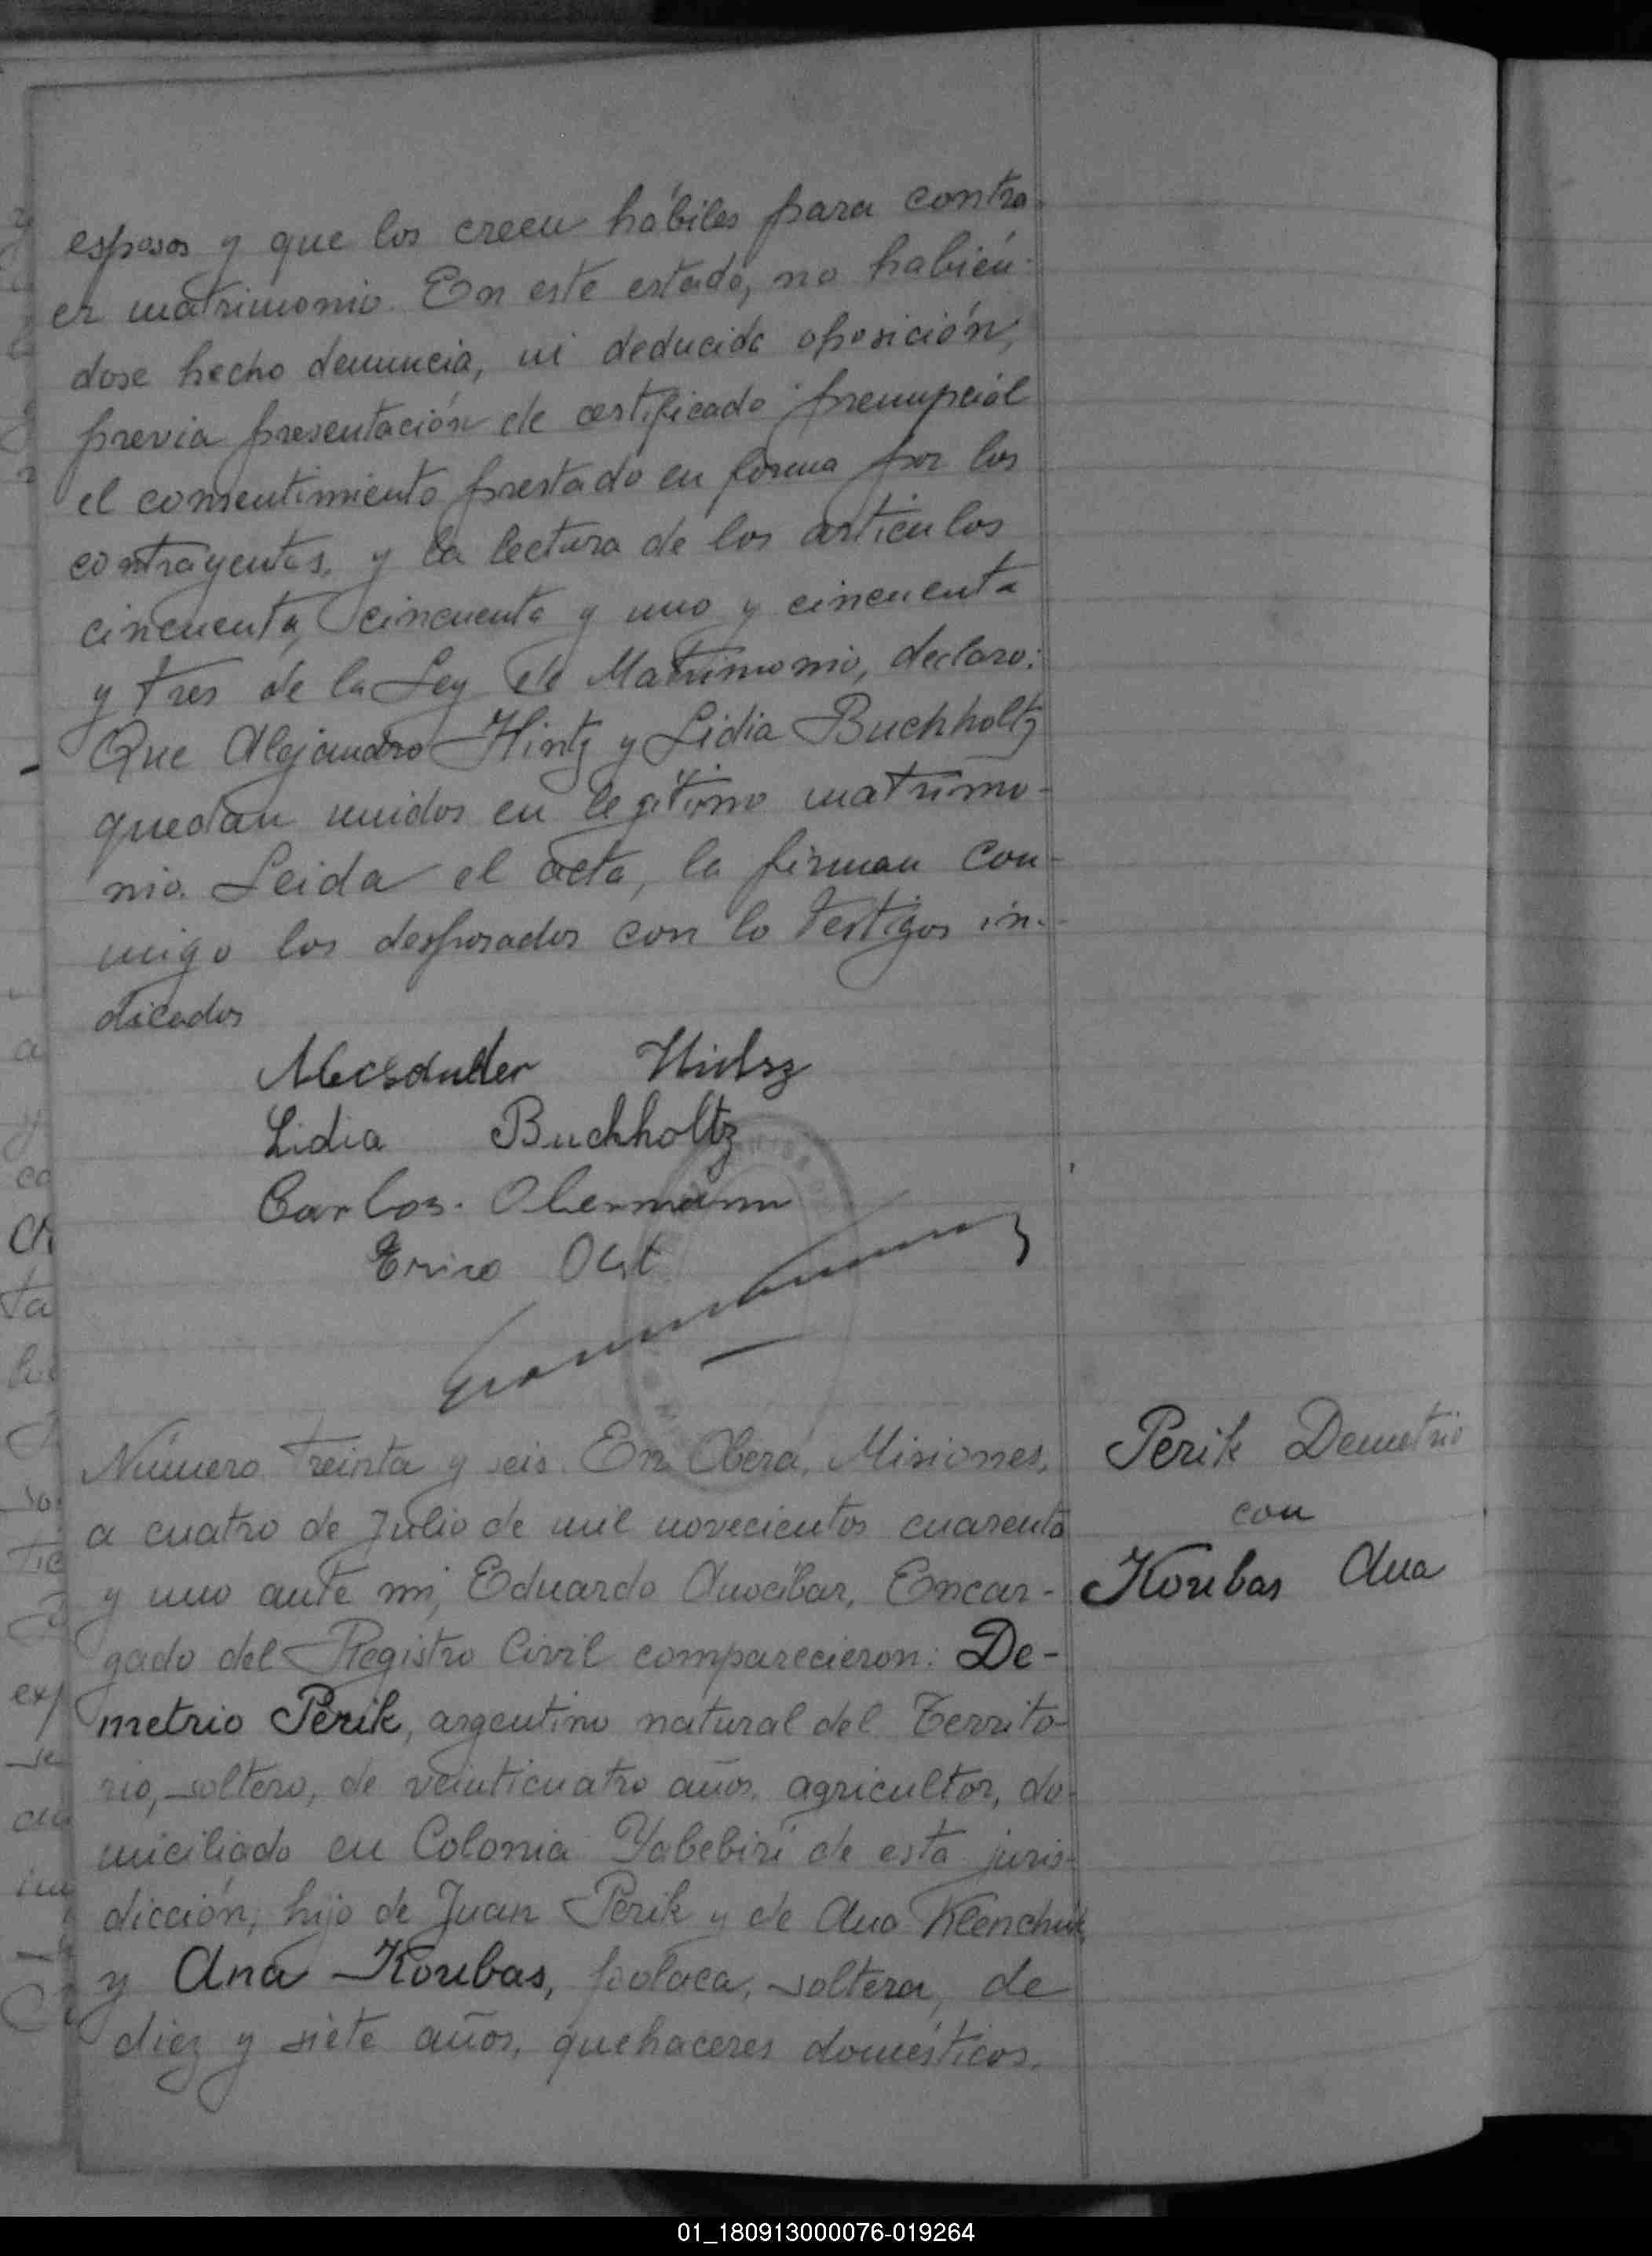 esposos y que los creen hábiles para contra
er matrimonio. En este estado, no habién-
dose hecho denuncia, ni deducido oposición,
previa presentación de certificado prenupcial
el consentimiento prestado en forma por los
contrayentes, y la lectura de los artículos
cincuenta, cincuenta y uno y cincuenta
y tres de la Ley de Matrimonio, declaro:
Que Alejandro Hintz y Lidia Buchholtz
quedan unidos en legítimo matrimo-
nio. Leida el acta, la firman con-
migo los desposados con lo testigos in-
dicados
Lidia Buchholtz
Carlos
Número treinta y seis. En Oberá, Misiones,
a cuatro de Julio de mil novecientos cuarenta
y uno ante mi, Eduardo Anocibar, Encar-
gado del Registro Civil comparecieron: De-
metrio Perik, argentino natural del Territo-
rio, soltero, de veinticuatro años, agricultor, do-
miciliado en Colonia Yabebiri de esta juris-
dicción, hijo de Juan Perik y de Ana Klenchuk,
y Ana Koubas, polaca, soltera, de
diez y siete años, quehaceres domésticos,
Perik Demetrio
con
Koubas Ana
01_180913000076-019264